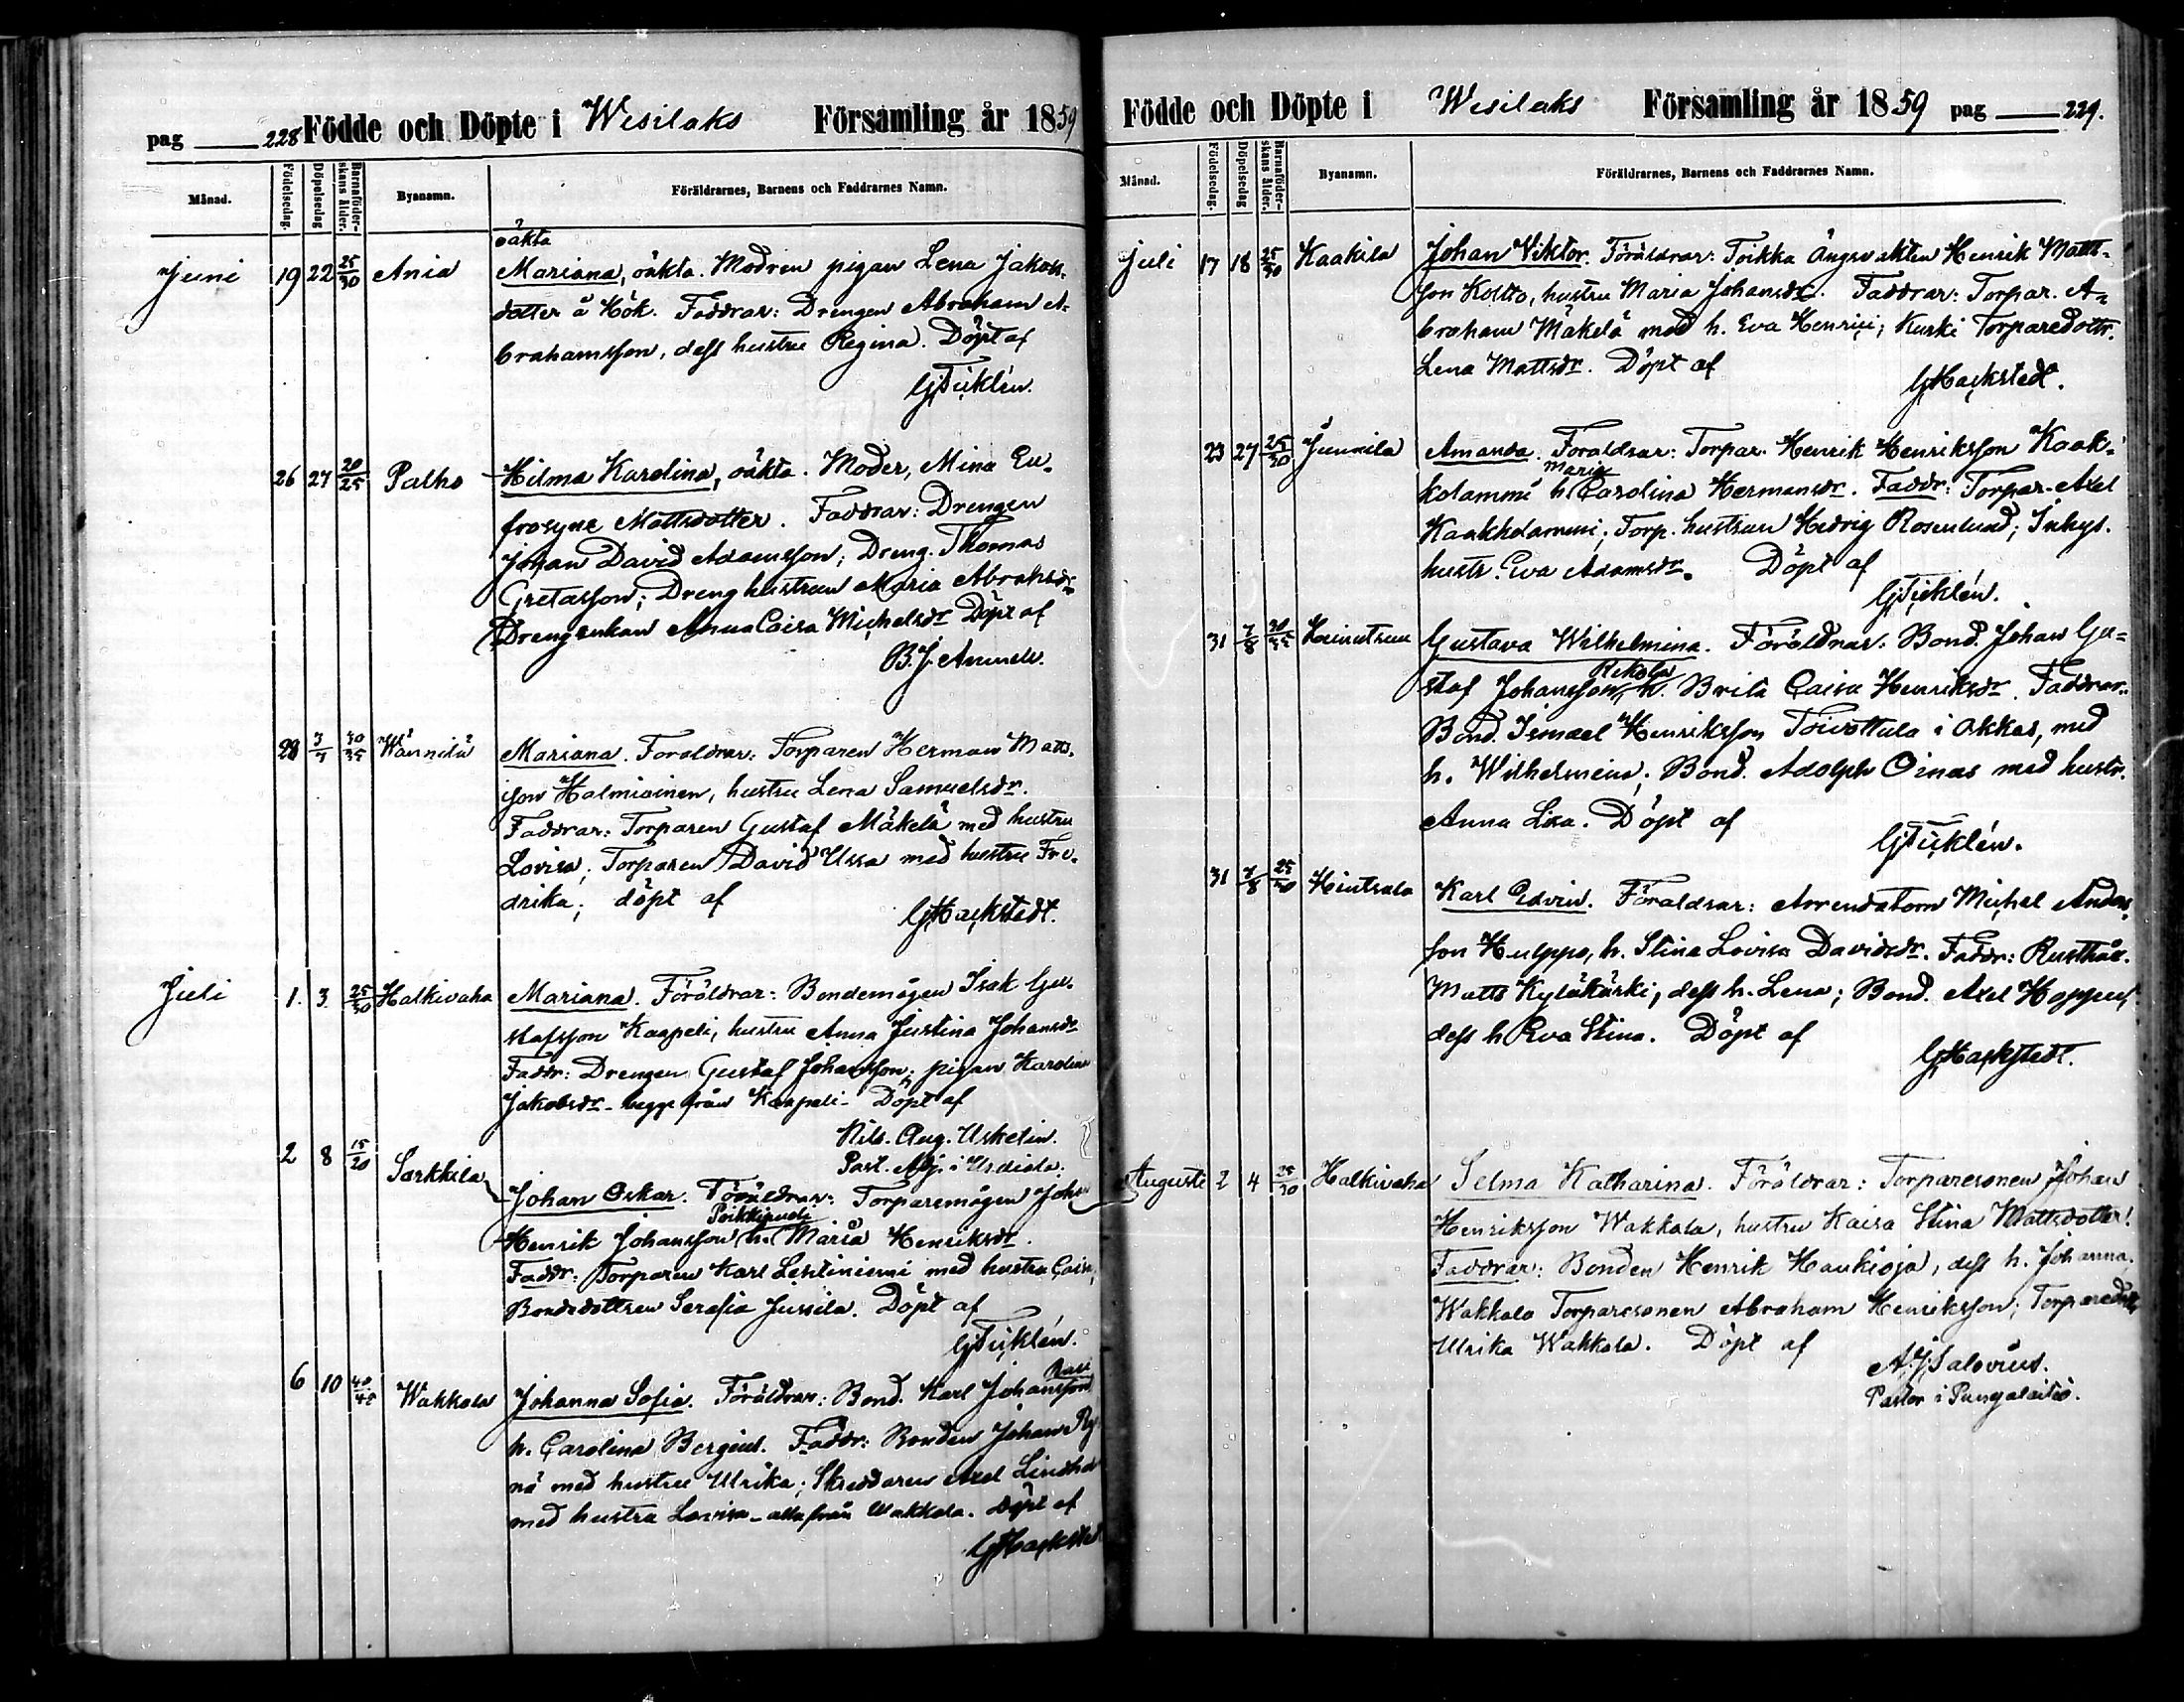 pag 228 Födde och Döpte i Wesilaks Församling år 1859
Månad. Födelsedag. Döpelsedag Barnaföder-skans ålder. Byanamn. Föräldrarnes, Barnens och Faddrarnes Namn.
oäkta
Juni 19 22 25/30 Ania Mariana, oäkta. Modren pigan Lena Jakobs-
dotter å Hök. Faddrar: Drengen Abraham A-
brahamsson, dess hustru Regina. Döpt af
GJTicklén.
26 27 20/25 Palho Hilma Karolina, oäkta. Moder, Mina Eu-
frosyne Mattsdotter. Faddrar: Drengen
Johan David Adamsson; Dreng. Thomas
Gretasson; Dreng hustrun Maria Abrahsdr
Drengenkan Anna Caisa Michelsdr Döpt af
B.J.
28 3/7 30/35 Wännilä Mariana. Foraldrar: Torparen Herman Matts-
son Halmioinen, hustru Lena Samuelsdr.
Faddrar: Torparen Gustaf Mäkelä med hustru
Lovisa; Torparen David Ussa med hustru Fre-
drika; döpt af
GHackstedt.
Juli 1. 3. 25/30 Halkivaha Mariana. Föräldrar: Bondemågen Isak Gu-
stafsson Kaapeli, hustru Anna Justina Johansdr
Faddr: Drengen Gustaf Johansson; pigan Karolina
Jakobsdr - begge från Kaapeli - Döpt af
Nils. Aug. Uskelin.
Past. Adj. i Urdiala.
2 8 15/20 Sarkkila Johan Oskar. Föräldrar: Torparemågen Johan
Poikkipuoli
Henrik Johansson h. Maria Henriksdr.
Faddr: Torparen Karl Lestiniemi med hustru Caisa,
Bondedottren Serafia Jussila. Döpt af
GJTicklén.
Rasi
6 10 40/45 Wakkala Johanna Sofia. Föräldrar: Bond. Karl Johansson
h. Carolina Bergius. Faddr: Bonden Johan
nä med hustru Ulrika; Skreddaren Axel
med hustru Lovisa - alla från Wakkala. Döpt af
GHackstedt
Födde och Döpte i Wesilaks Församling år 1859 pag 229.
Månad. Födelsedag. Döpelsedag Barnaföder-skans ålder. Byanamn. Föräldrarnes, Barnens och Faddrarnes Namn.
Juli 17 18 25/30 Kaakila Johan Viktor. Föräldrar: Toikka Ängsvakten Henrik Matts-
son Koltto, hustru Maria Johansdr. Faddrar: Torpar. A-
braham Mäkelä med h. Eva Henrici; Kurki Torparedottr.
Lena Mattsdr. Döpt af
GHackstedt.
23 27 25/30 Junnila Amanda. Föraldrar: Torpar. Henrik Henriksson Kaak-
Maria
kolammi h. Carolina Hermansdr. Faddr: Torpar. Axel
Kaakkolammi; Torp. hustrun Hedvig Rosenlund; Inhys.
hustr. Eva Adamsdr. Döpt af
GJTicklén.
31 7/8 30/35 Koinutsuu Gustava Wilhelmina. Föräldrar: Bond. Johan Gu-
Rekola
staf Johansson h. Brita Caisa Henriksdr. Faddrar:
Bond. Ismael Henriksson Toivottula i Akkas, med
h. Wilhelmina; Bond. Adolph Oinas med hustr.
Anna Lisa. Döpt af
GJTicklén.
31 7/8 25/30 Hintsala Karl Edvin. Föraldrar: Arrendatorn Michel Anders-
son Hulppo, h. Stina Lovisa Davidsdr. Faddr: Rusthål.
Matts Kyläkurki, dess h. Lena; Bond. Axel Hoppu,
dess h Eva Stina. Döpt af
GHackstedt.
Augusti 2 4 25/30 Halkivaha Selma Katharina. Föräldrar: Torparesonen Johan
Henriksson Wakkala, hustru Kaisa Stina Mattsdotter.
Faddrar: Bonden Henrik Haukioja, dess h. Johanna.
Wakkala Torparesonen Abraham Henriksson; Torparedottr
Ulrika Wakkala. Döpt af
A.J.Salovius.
Pastor i Pungalaitio.